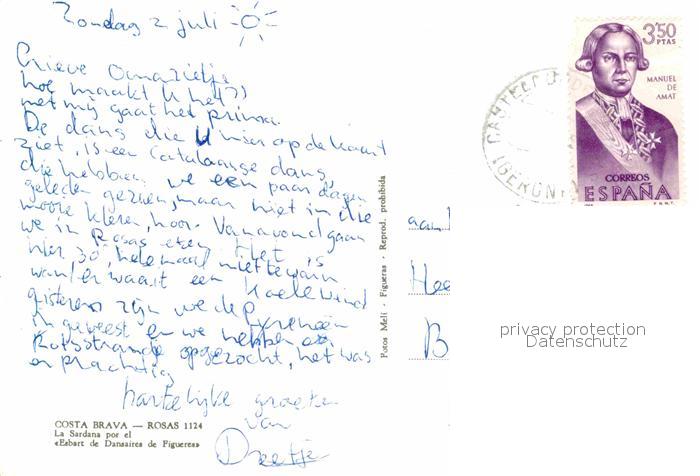 Zondag 2 juli
Lieve Omazietje
hoe maakt U het??
met mij gaat het prima.
De dans die U hier op de kaart
ziet, is een Catalaanse dans,
die hebben we een paar dagen
geleden gezien, maar niet in die
mooie kleren, hoor. Vanavond gaan
we in Rosas eten. Het is
hier 30°, helemaal niet te warm
want er waait een koele wind
gisteren zijn we de Pyreneeën
in geweest en we hebben
Rotsstrandje opgezocht, het was
er prachtig
hartelijke groeten
van
COSTA BRAVA — ROSAS 1124
La Sardana por el
«Esbart de Dansaires de Figueres»
Fotos Meli - Figueras - Reprod. prohibida
aan
Hee
B
3'50
PTAS
MANUEL
DE
AMAT
CORREOS
ESPAÑA
privacy protection
Datenschutz